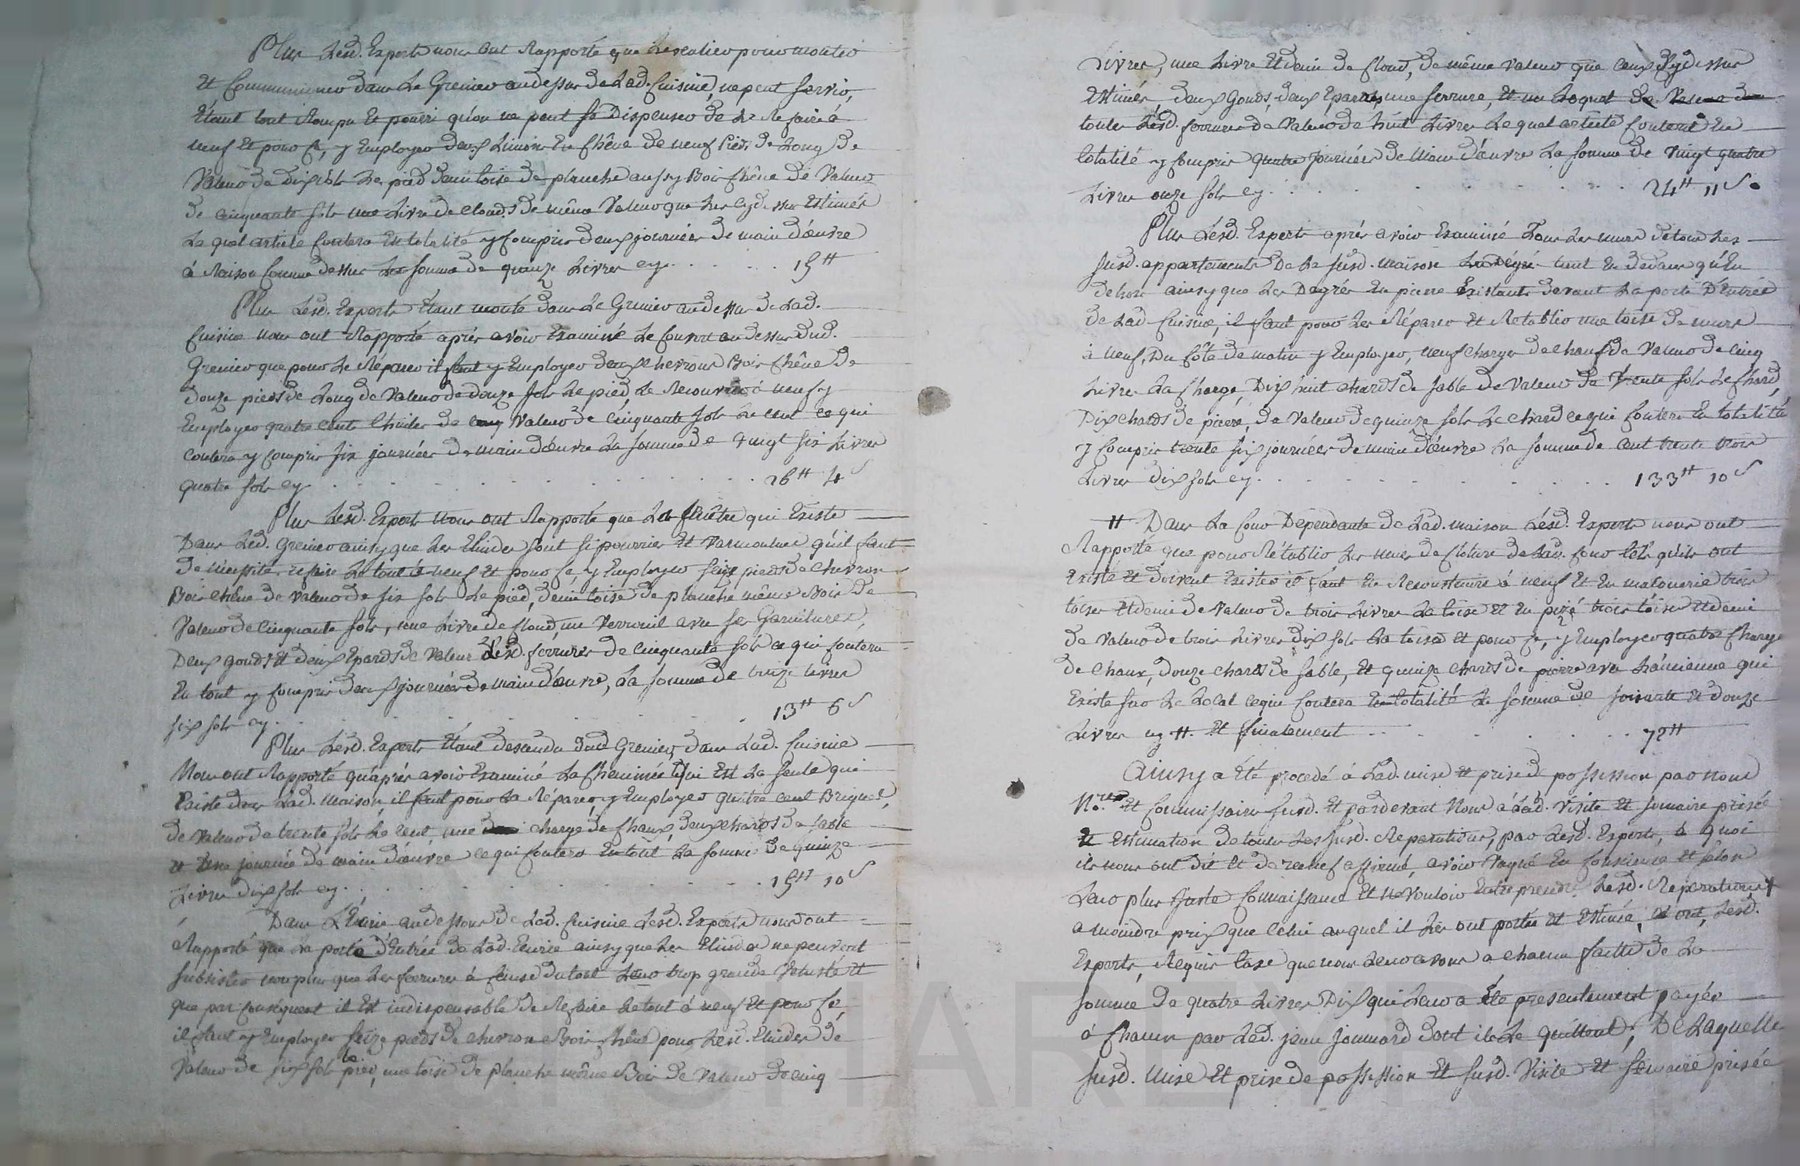 Plus Lesd. Experts nous ont Rapporté que L'escalier pour monter
et Communiquer dans Le Grenier au dessus de Lad. Cuisine, ne peut servir,
Etant tout Rompu et pourri qu'on ne peut se Dispenser de Le Refaire à
neuf et pour ce, y Employer deux Limons En Chêne de neuf pieds de Long de
Valeur de Dix sols Le pied demi toise de planche aussy Bois Chêne de Valeur
de cinquante sols une Livre de Clouds de même Valeur que Les cyd. sus Estimés
Le quel article Coutera En totalité y Compris deux journées de main d'œuvre
à Raison Comme dessus La somme de quinze Livres cy . . . . . 15ᵗᵗ
Plus Lesd. Experts Etant monté dans Le Grenier au dessus de Lad.
Cuisine nous ont Rapporté après avoir Examiné Le Couvert au dessus dud.
Grenier que pour Le Réparer il faut y Employer deux Chevrons Bois Chêne de
douze pieds de Long de Valeur de douze sols Le pied, Le Recouvrir à neuf y
Employer quatre cent Thuiles de Valeur de cinquante sols Le cent ce qui
coutera y compris six journées de main d'œuvre La somme de vingt six Livres
quatre sols cy . . . . . . . . . . . 26ᵗᵗ 4ˢ
Plus Lesd. Experts Nous ont Rapporté que La fenêtre qui Existe
Dans Led. Grenier ainsy que Les Elinder sont si pourries et Vermoulues qu'il faut
de nécessité refaire Le tout à neuf et pour ce, y Employer seize pieds de Chevron
Bois Chêne de Valeur de six sols Le pied, demi toise de planche même Bois de
Valeur de Cinquante sols, une Livre de Cloud, un Verrouil avec ses Garnitures,
Deux gonds et deux Epards de Valeur Lesd. ferrures de cinquante sols ce qui Coutera
En tout y Compris deux journées de main d'œuvre, La somme de treize Livres
six sols cy . . . . . . . . . . . 13ᵗᵗ 6ˢ
Plus Lesd. Experts Etant descendu dud. Grenier dans Lad. Cuisine
Nous ont Rapporté qu'après avoir Examiné La Cheminée qui Est La seule qui
Existe dans Lad. Maison il faut pour La Réparer, y Employer quatre cent Briques,
de Valeur de trente sols Le cent, une charge de Chaux deux chards de sable
et une journée de main d'œuvre ce qui Coutera En tout La somme de quinze
Livres dix sols cy . . . . . . . . . 15ᵗᵗ 10ˢ
Dans L'Ecurie au dessous de Lad. Cuisine Lesd. Experts nous ont
Rapporté que La porte d'Entrée de Lad. Ecurie ainsy que Les Elinder ne peuvent
subsister non plus que Les ferrures à Cause du tout Leur trop grande Vetusté et
que par Conséquent il Est indispensable de Refaire Le tout à neuf Et pour Ce,
il faut y Employer seize pieds de chevron Bois Chêne pour Lesd. Elinder de
Valeur de six sols Le pied, une toise de planche même Bois de Valeur de cinq
Livres, une Livre Et demi de Cloud, de même Valeur que Ceux cyd. sus
Estimés, deux Gonds, deux Eparres une serrure, Et un Loquet
toutes Lesd. ferrures de Valeur de huit Livres Le quel article Coutera En
totalité y Compris quatre journées de Main d'œuvre La somme de Vingt quatre
Livres onze sols cy . . . . . . . . . 24ᵗᵗ 11ˢ
Plus Lesd. Experts après avoir Examiné Tous Les murs de tous Les
susd. appartements De La susd. maison tant En dedans qu'En
dehors ainsy que Les Degrés En pierre Existants devant La porte D'Entrée
de Lad. Cuisine, il faut pour Les Réparer Et Rétablir une toise de murs
à neuf, Du Côté de matin y Employer, neuf charges de Chaux de Valeur de cinq
Livres La Charge, Dix huit chards de sable de Valeur de trente sols Le Chard,
Dix chards de pierre, de Valeur de quinze sols Le chard ce qui Coutera En totalité
y Compris trente six journées de main d'œuvre La somme de cent trente trois
Livres dix sols cy . . . . . . . . . 133ᵗᵗ 10ˢ
Dans La Cour Dépendante de Lad. maison Lesd. Experts nous ont
Rapporté que pour Rétablir Les murs de Cloture de Lad. Cour tels qu'ils ont
Existé Et doivent Exister il faut En Reconstruire à neuf Et En maçonerie trois
toises Et demi de Valeur de trois Livres La toise Et En pizé trois toises Et demi
de Valeur de trois Livres dix sols La toise et pour Ce, y Employer quatre Charges
de Chaux, douze chards de sable, Et quinze chards de pierre avec L'ancienne qui
Existe sur Le Local ce qui Coutera En totalité La somme de soixante Et douze
Livres cy. Et finalement . . . . . . 72ᵗᵗ
Ainsy a Eté procédé à Lad. mise et prise de possession par Nous
N.ʳᵉ Et Commissaire susd. Et par devant Nous à Lad. Visite Et somaire prisée
Et Estimation de toutes Les susd. Réparations, par Lesd. Experts, à quoi
ils nous ont dit Et de relief affirmé, avoir Vaqué En Conscience Et selon
Leur plus juste Connaissance Et ne Vouloir Entreprendre Lesd. Réparations
a moindre prix que Celui auquel il Les ont portées et Estimée, Et ont, Lesd.
Experts, Requis taxe que nous Leur avons à chacun faitte de La
somme de quatre Livres Dix qui Leur a Eté présentement payée
à Chacun par Led. jean Jannard dont ils Le quittent, De Laquelle
susd. Mise Et prise de possession Et susd. Visite Et somaire prisée